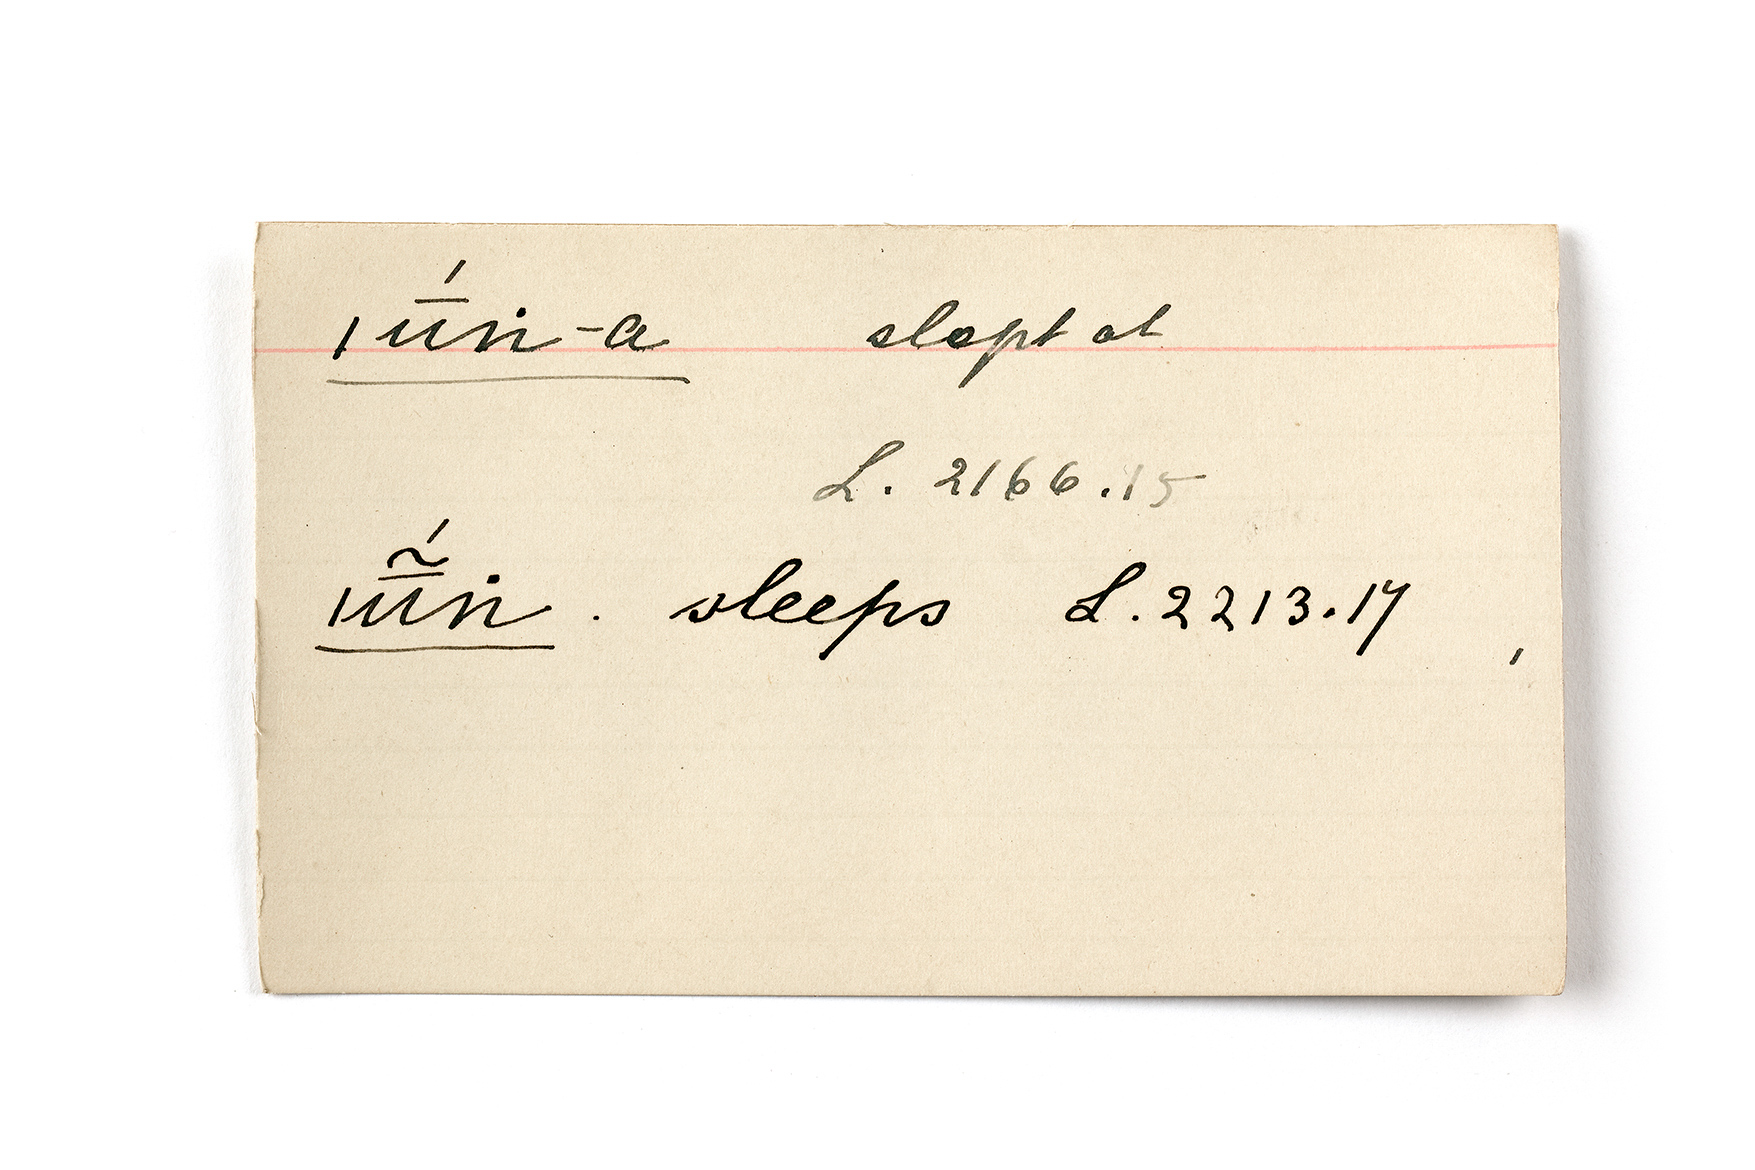 ıū́ṅ-a slept at
L. 2166.15
ıū̃́ṅ. sleeps L. 2213.17